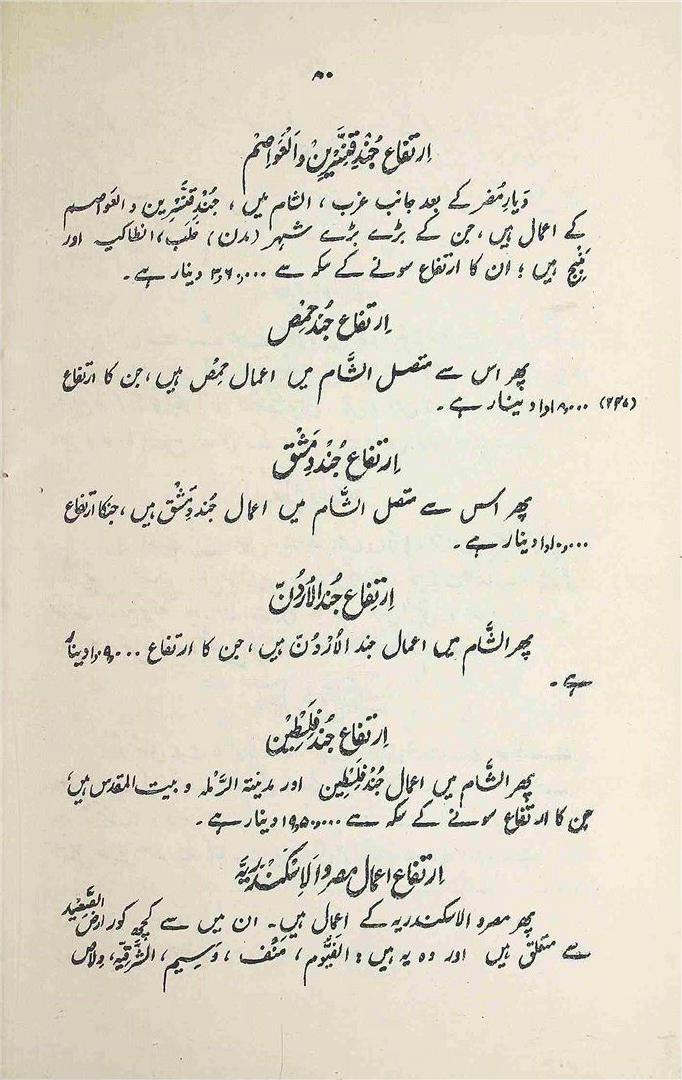 ۸۰
ارتفاع جُندِ قِنَّسْرِین والعَواصِم
دَیارِ مُضَر کے بعد جانب غرب ، الشام میں ، جُندِ قِنَّسْرِین والعواصم
کے اعمال ہیں ، جن کے بڑے بڑے شہر (مدن) حَلَب ، انطاکیہ اور
مَنْبِج ہیں ؛ ان کا ارتفاع سونے کے سکہ سے ۳،۶۰،۰۰۰ دینار ہے ۔
ارتفاع جُندِ حِمْص
پھر اس سے متصل الشَّام میں اعمال حِمْص ہیں ، جن کا ارتفاع
(۲۴۷) دینار ہے ۔
ارتفاع جُندِ دِمَشْق
پھر اس سے متصل الشَّام میں اعمال جُندِ دِمَشْق ہیں ، جنکا ارتفاع
۱،۱۰،۰۰۰ دینار ہے ۔
ارتفاع جُند الاُرْدُنّ
پھر الشَّام میں اعمال جند الاُرْدُنّ ہیں ، جن کا ارتفاع ۱،۰۹،۰۰۰ دینار
ہے ۔
ارتفاع جُندِ فِلَسْطِین
پھر الشَّام میں اعمال جُندِ فِلَسْطِین اور مدینۃ الرَّملہ و بیت المقدس ہیں ،
جن کا ارتفاع سونے کے سکہ سے ۱،۹۵،۰۰۰ دینار ہے ۔
ارتفاع اعمال مصر والاِسْکَنْدَرِیَّہ
پھر مصر و الاسکندریہ کے اعمال ہیں ۔ ان میں سے کچھ کُوَر ارض الصَّعِید
سے متعلق ہیں اور وہ یہ ہیں : الفَیُّوم ، مَنْف ، وَسِیم ، الشَّرقِیَّہ ، دِلاص